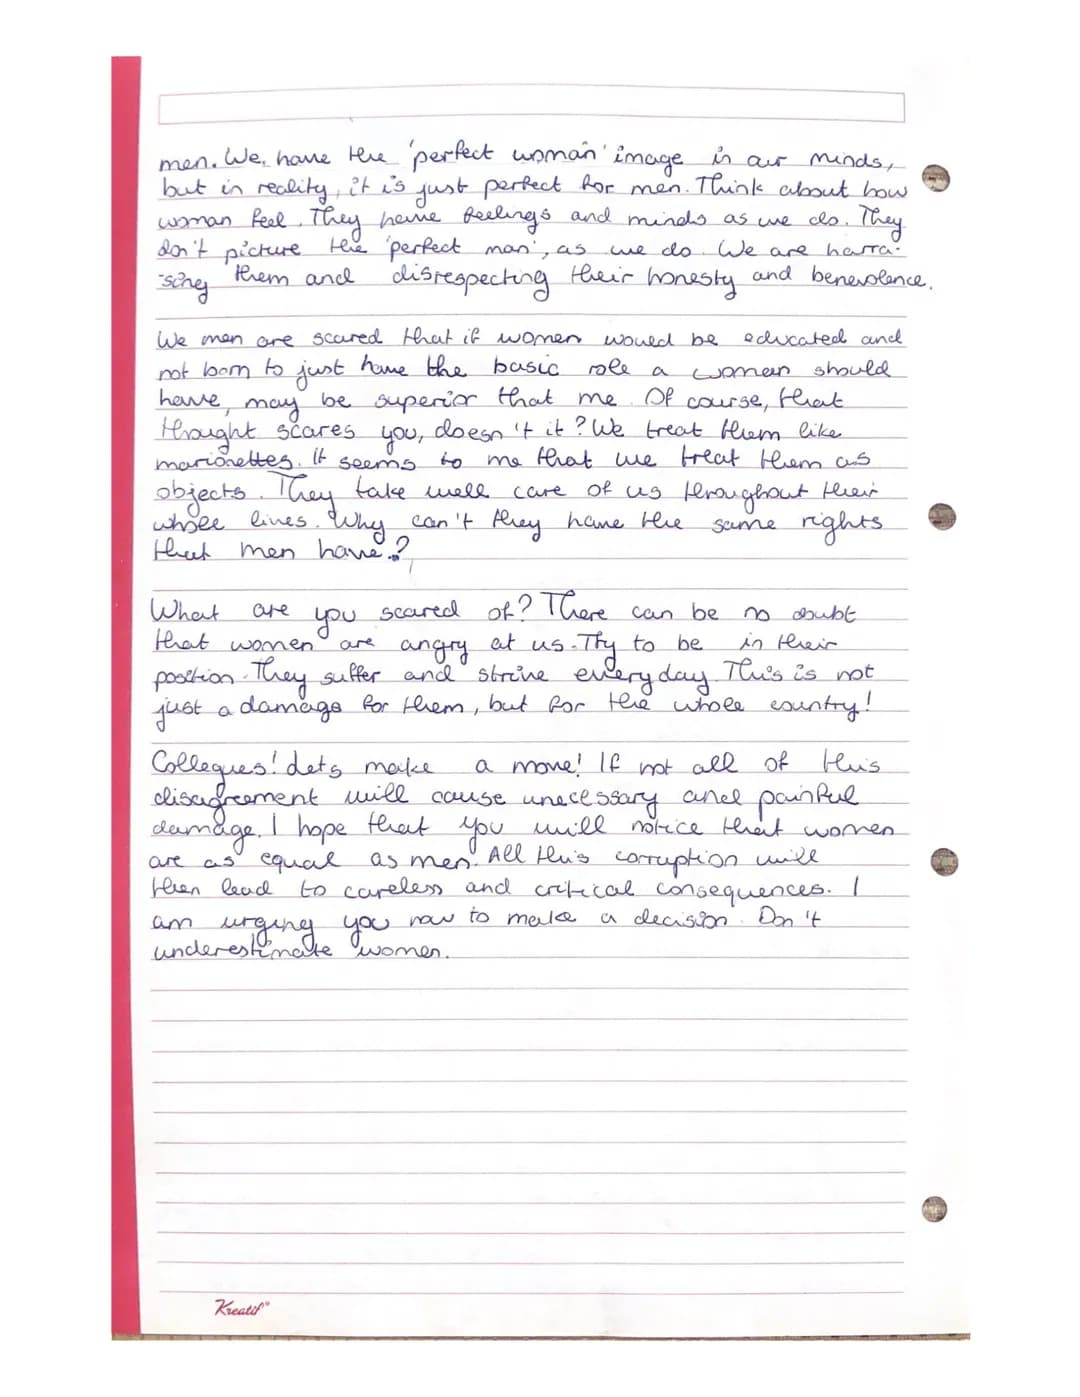 men. We, have the 'perfect woman' image in our minds,
but in reality, it is just perfect for men. Think about how
woman feel. They have feelings and minds as we do. They
don't picture the 'perfect man', as we do. We are harra-
sing them and disrespecting their honesty and benevolence.
We men are scared that if women would be educated and
not born to just have the basic role a woman should
have, may be superior that me. Of course, that
thought scares you, doesn't it? We treat them like
marionettes. It seems to me that we treat them as
objects. They take well care of us throughout their
whole lives. Why can't they have the same rights
that men have?
What are you scared of? There can be no doubt
that women are angry at us. Try to be in their
position. They suffer and strive everyday. This is not
just a damage for them, but for the whole country!
Collegues! Lets make a move! If not all of this
disagreement will cause unecessary and painful
damage. I hope that you will notice that women
are as equal as men. All this corruption will
then lead to careless and critical consequences. I
am urging you now to make a decision. Don't
underestimate women.
Kreatif